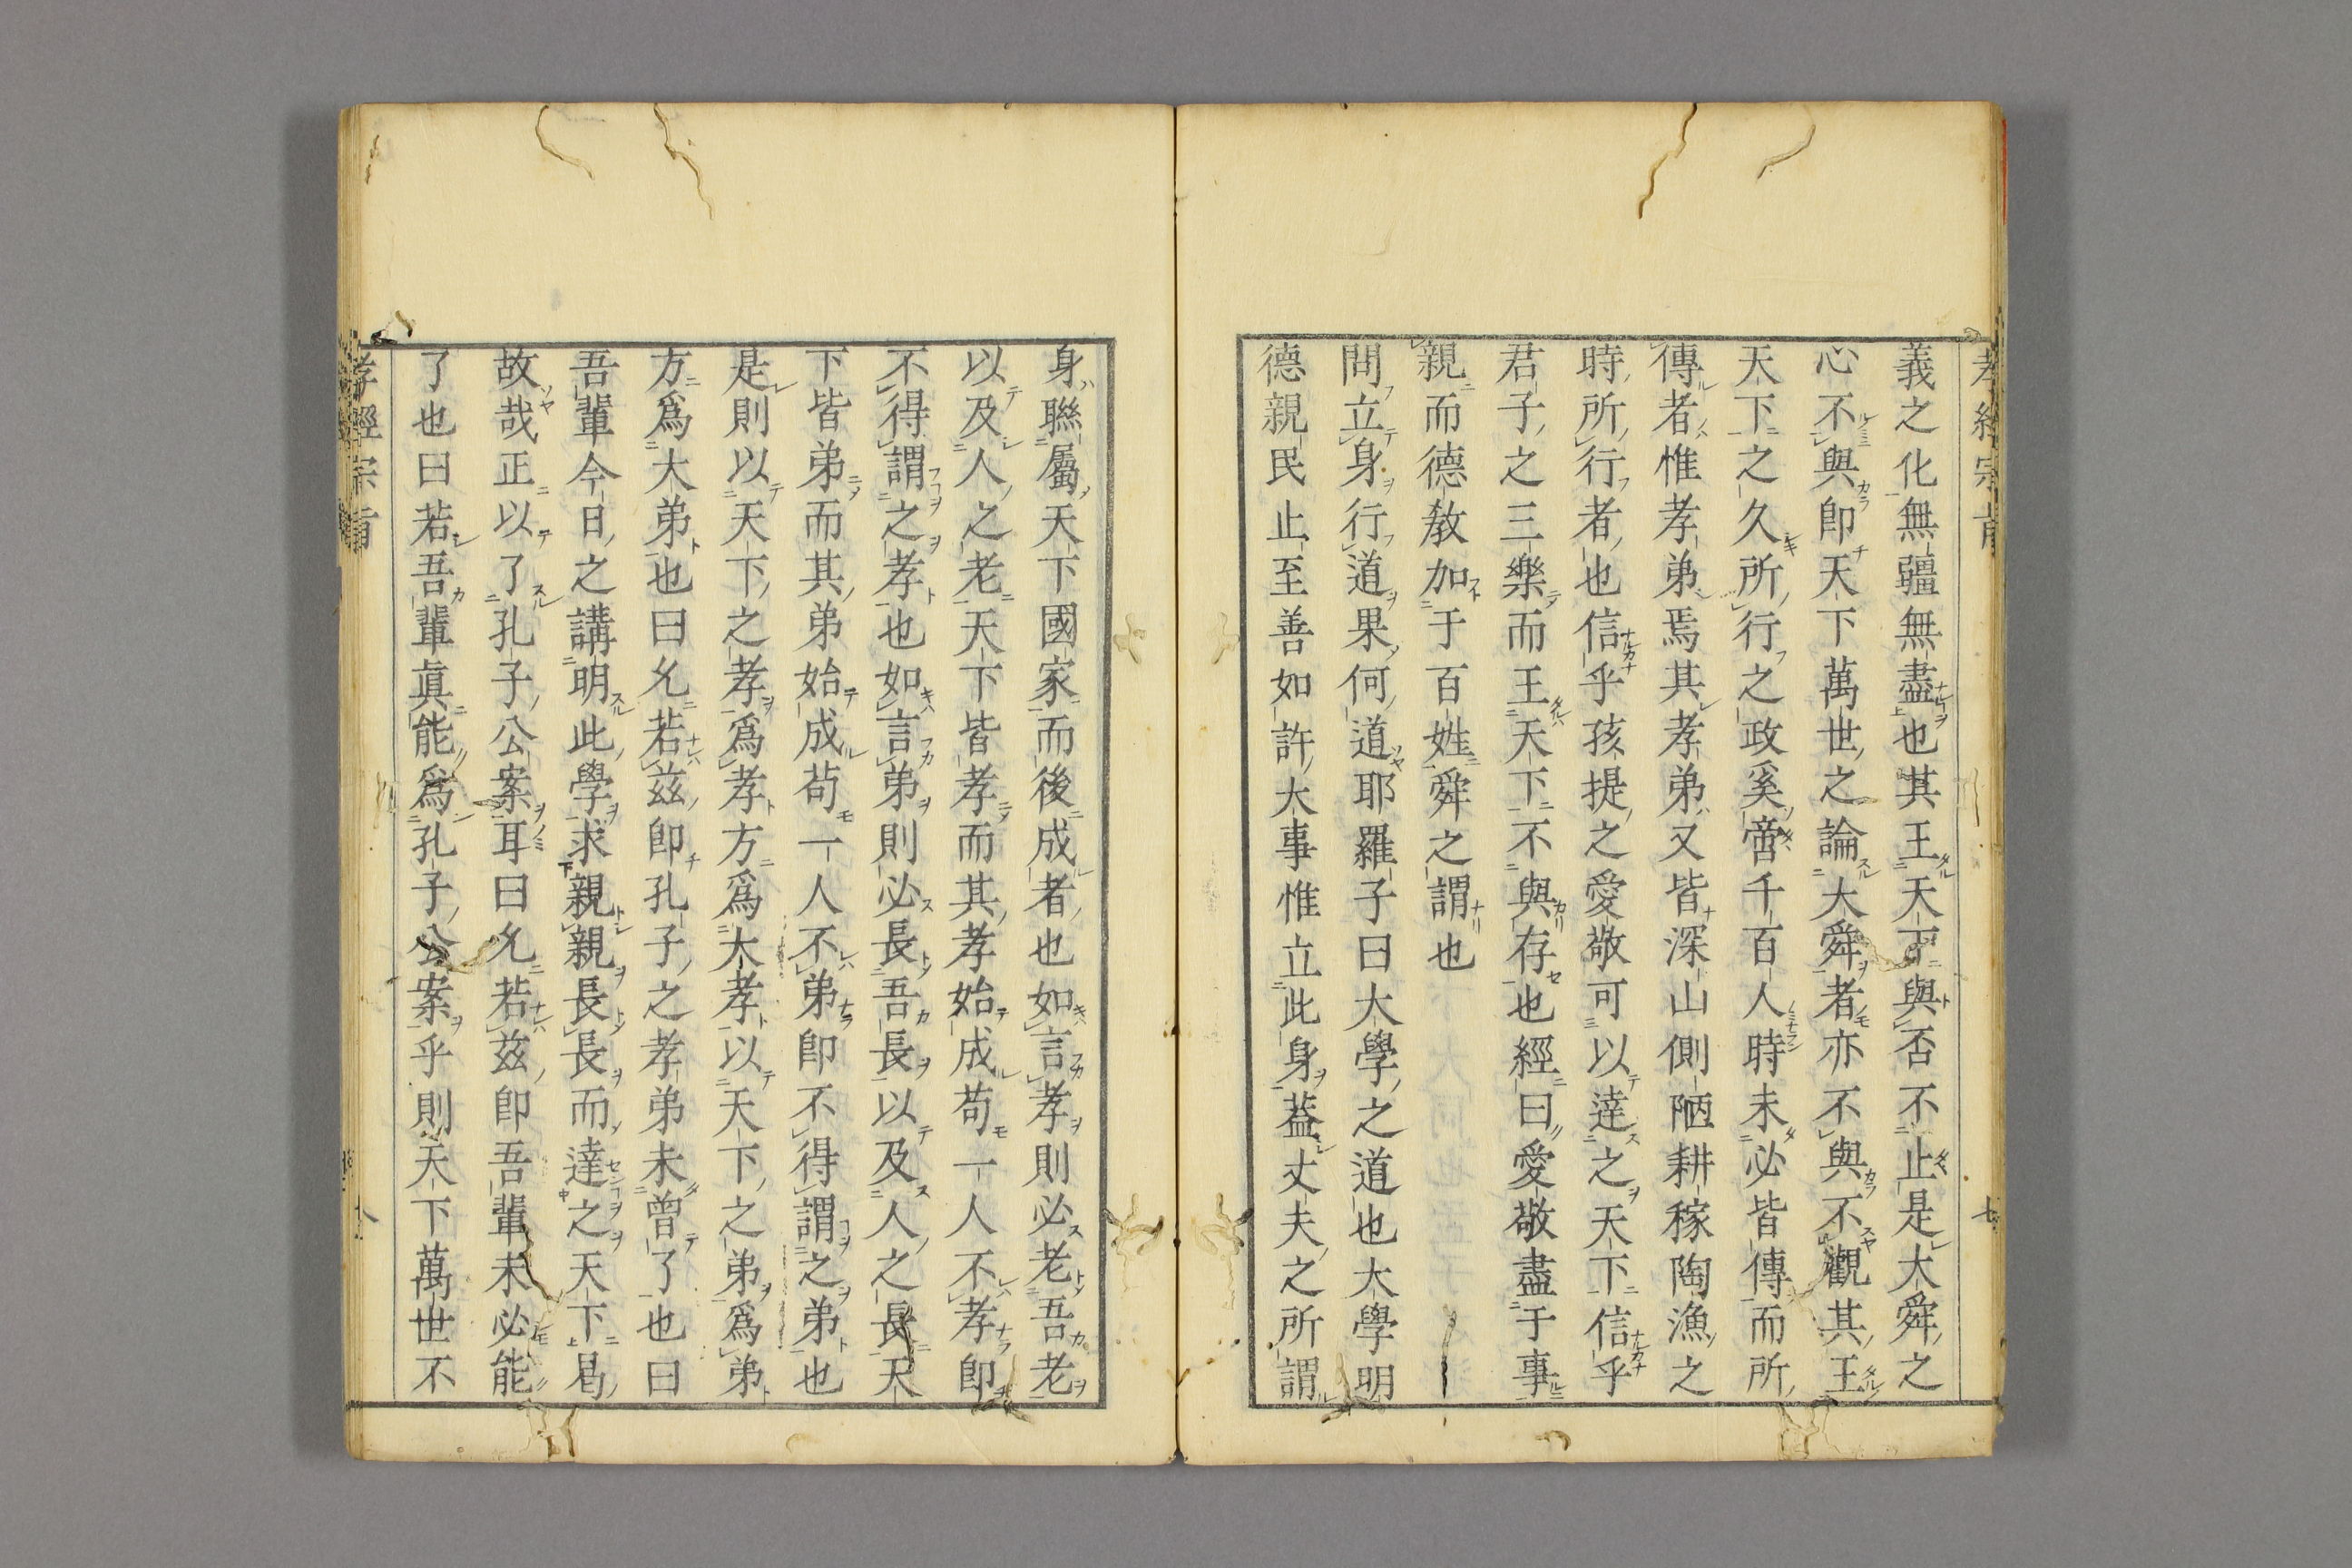 義之化無疆無盡也其王天下與否不止是大舜之
心不與卽天下萬世之論大舜者亦不與不觀其王
天下之久所行之政奚啻千百人時未必皆傳而所
傳者惟孝弟焉其孝弟又皆深山側陋耕稼陶漁之
時所行者也信乎孩提之愛敬可以達之天下信乎
君子之三樂而王天下不與存也經曰愛敬盡于事
親而德敎加于百姓舜之謂也
問立身行道果何道耶羅子曰大學之道也大學明
德親民止至善如許大事惟立此身葢丈夫之所謂
身聯屬天下國家而後成者也如言孝則必老吾老
以及人之老天下皆孝而其孝始成苟一人不孝卽
不得謂之孝也如言弟則必長吾長以及人之長天
下皆弟而其弟始成苟一人不弟卽不得謂之弟也
是則以天下之孝爲孝方爲大孝以天下之弟爲弟
方爲大弟也曰允若茲卽孔子之孝弟未曾了也曰
吾輩今日之講明此學求親親長長而達之天下曷
故哉正以了孔子公案耳曰允若茲卽吾輩未必能
了也曰若吾輩眞能爲孔子公案乎則天下萬世不
孝經宗旨